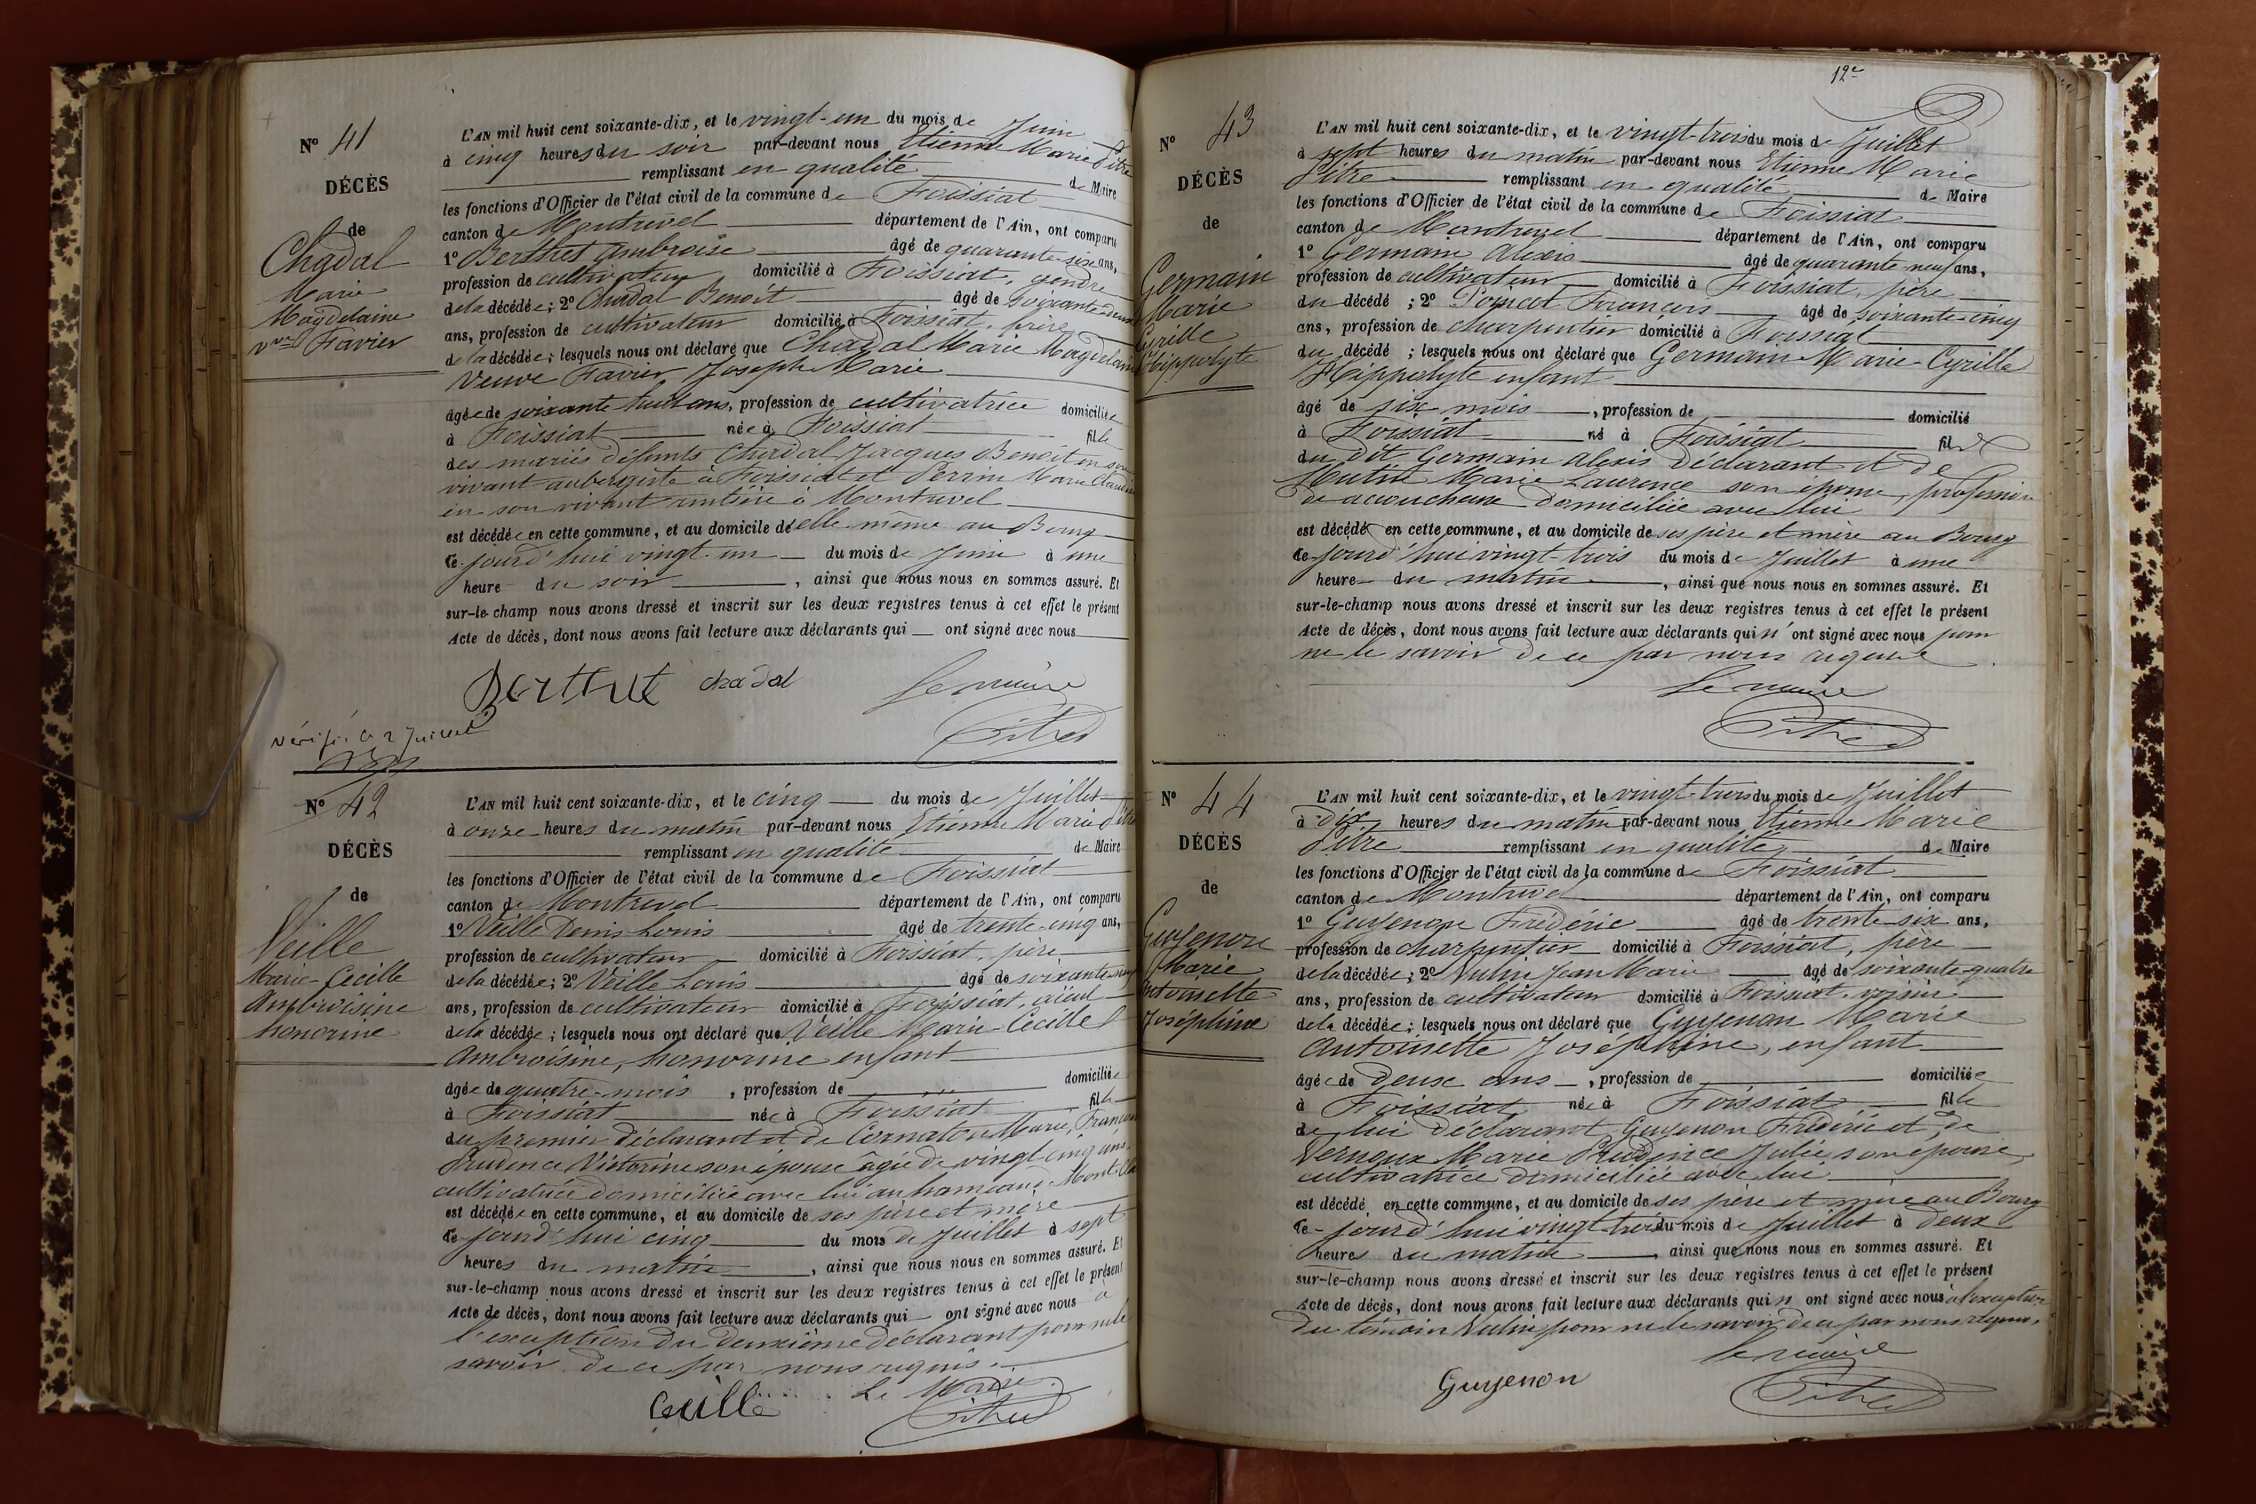 N° 41
DÉCÈS
de
Chadal
Marie
Magdelaine
vve Favier
L'AN mil huit cent soixante-dix, et le vingt-un du mois de Juin
à cinq heures du soir par-devant nous Etienne Marie Pitre
remplissant en qualité de Maire
les fonctions d'Officier de l'état civil de la commune de Foissiat
canton de Montrevel département de l'Ain, ont comparu
1° Berthet Ambroise âgé de quarante-six ans,
profession de cultivateur domicilié à Foissiat, gendre
de la décédée; 2° Chadal Benoit âgé de soixante-deux
ans, profession de cultivateur domicilié à Foissiat, frère
de la décédée; lesquels nous ont déclaré que Chadal Marie Magdelaine
Veuve Favier Joseph Marie
âgée de soixante huit ans, profession de cultivatrice domiciliée
à Foissiat née à Foissiat fille
des mariés défunts Chadal Jacques Benoit en son
vivant aubergiste à Foissiat et Perrin Marie Claudine
en son vivant rentière à Montrevel
est décédée en cette commune, et au domicile d'elle même au Bourg
ce jourd'hui vingt-un du mois de Juin à une
heure du soir, ainsi que nous nous en sommes assuré. Et
sur-le-champ nous avons dressé et inscrit sur les deux registres tenus à cet effet le présent
Acte de décès, dont nous avons fait lecture aux déclarants qui ont signé avec nous
Berthet chadal Le maire
Pitre
Vérifié le 2 Juillet
N° 42
DÉCÈS
de
Veille
Marie-Cecille
Ambroisine
honorine
L'AN mil huit cent soixante-dix, et le cinq du mois de Juillet
à onze heures du matin par-devant nous Etienne Marie Pitre
remplissant en qualité de Maire
les fonctions d'Officier de l'état civil de la commune de Foissiat
canton de Montrevel département de l'Ain, ont comparu
1° Veille Denis Louis âgé de trente-cinq ans,
profession de cultivateur domicilié à Foissiat, père
de la décédée; 2° Veille Louis âgé de soixante-neuf
ans, profession de cultivateur domicilié à Foissiat, aïeul
de la décédée; lesquels nous ont déclaré que Veille Marie-Cecille
Ambroisine, honorine enfant
âgée de quatre mois, profession de domiciliée
à Foissiat née à Foissiat fille
du premier déclarant et de Cornaton Marie, Françoise
Prudence Victorine son épouse âgée de vingt cinq ans
cultivatrice domiciliée avec lui au hameau de Mont
est décédée en cette commune, et au domicile de ses père et mère
ce jourd'hui cinq du mois de Juillet à sept
heures du matin, ainsi que nous nous en sommes assuré. Et
sur-le-champ nous avons dressé et inscrit sur les deux registres tenus à cet effet le présent
Acte de décès, dont nous avons fait lecture aux déclarants qui ont signé avec nous à
l'exception du deuxième déclarant pour ne le
savoir de ce par nous requis.
Le Maire
Pitre
12e
N° 43
DÉCÈS
de
Germain
Marie
Cyrille
Hippolyte
L'AN mil huit cent soixante-dix, et le vingt-trois du mois de Juillet
à sept heures du matin par-devant nous Etienne Marie
Pitre remplissant en qualité de Maire
les fonctions d'Officier de l'état civil de la commune de Foissiat
canton de Montrevel département de l'Ain, ont comparu
1° Germain Alexis âgé de quarante neuf ans,
profession de cultivateur domicilié à Foissiat, père
du décédé; 2° Poncet François âgé de soixante-cinq
ans, profession de charpentier domicilié à Foissiat
du décédé; lesquels nous ont déclaré que Germain Marie-Cyrille
Hippolyte enfant
âgé de six mois, profession de domicilié
à Foissiat né à Foissiat fils
du dit Germain Alexis déclarant et de
Mutin Marie Laurence son épouse, profession
de accoucheuse domiciliée avec lui
est décédé en cette commune, et au domicile de ses père et mère au Bourg
ce jourd'hui vingt-trois du mois de Juillet à une
heure du matin, ainsi que nous nous en sommes assuré. Et
sur-le-champ nous avons dressé et inscrit sur les deux registres tenus à cet effet le présent
Acte de décès, dont nous avons fait lecture aux déclarants qui n'ont signé avec nous pour
ne le savoir de ce par nous requis
Le maire
Pitre
N° 44
DÉCÈS
de
Guyenon
Marie
Antoinette
Joséphine
L'AN mil huit cent soixante-dix, et le vingt-trois du mois de Juillet
à dix heures du matin par-devant nous Etienne Marie
Pitre remplissant en qualité de Maire
les fonctions d'Officier de l'état civil de la commune de Foissiat
canton de Montrevel département de l'Ain, ont comparu
1° Guyenon Frédéric âgé de trente-six ans,
profession de charpentier domicilié à Foissiat, père
de la décédée; 2° Vulin Jean Marie âgé de soixante-quatre
ans, profession de cultivateur domicilié à Foissiat, voisin
de la décédée; lesquels nous ont déclaré que Guyenon Marie
Antoinette Joséphine, enfant
âgée de deux ans, profession de domiciliée
à Foissiat née à Foissiat fille
de lui déclarant Guyenon Frédéric et de
Vernoux Marie Prudence Julie son épouse
cultivatrice domiciliée avec lui
est décédé en cette commune, et au domicile de ses père et mère au Bourg
ce jourd'hui vingt-trois du mois de Juillet à deux
heures du matin, ainsi que nous nous en sommes assuré. Et
sur-le-champ nous avons dressé et inscrit sur les deux registres tenus à cet effet le présent
Acte de décès, dont nous avons fait lecture aux déclarants qui n ont signé avec nous à l'exception
du témoin Vulin pour ne le savoir de ce par nous requis.
Le maire
Guyenon Pitre